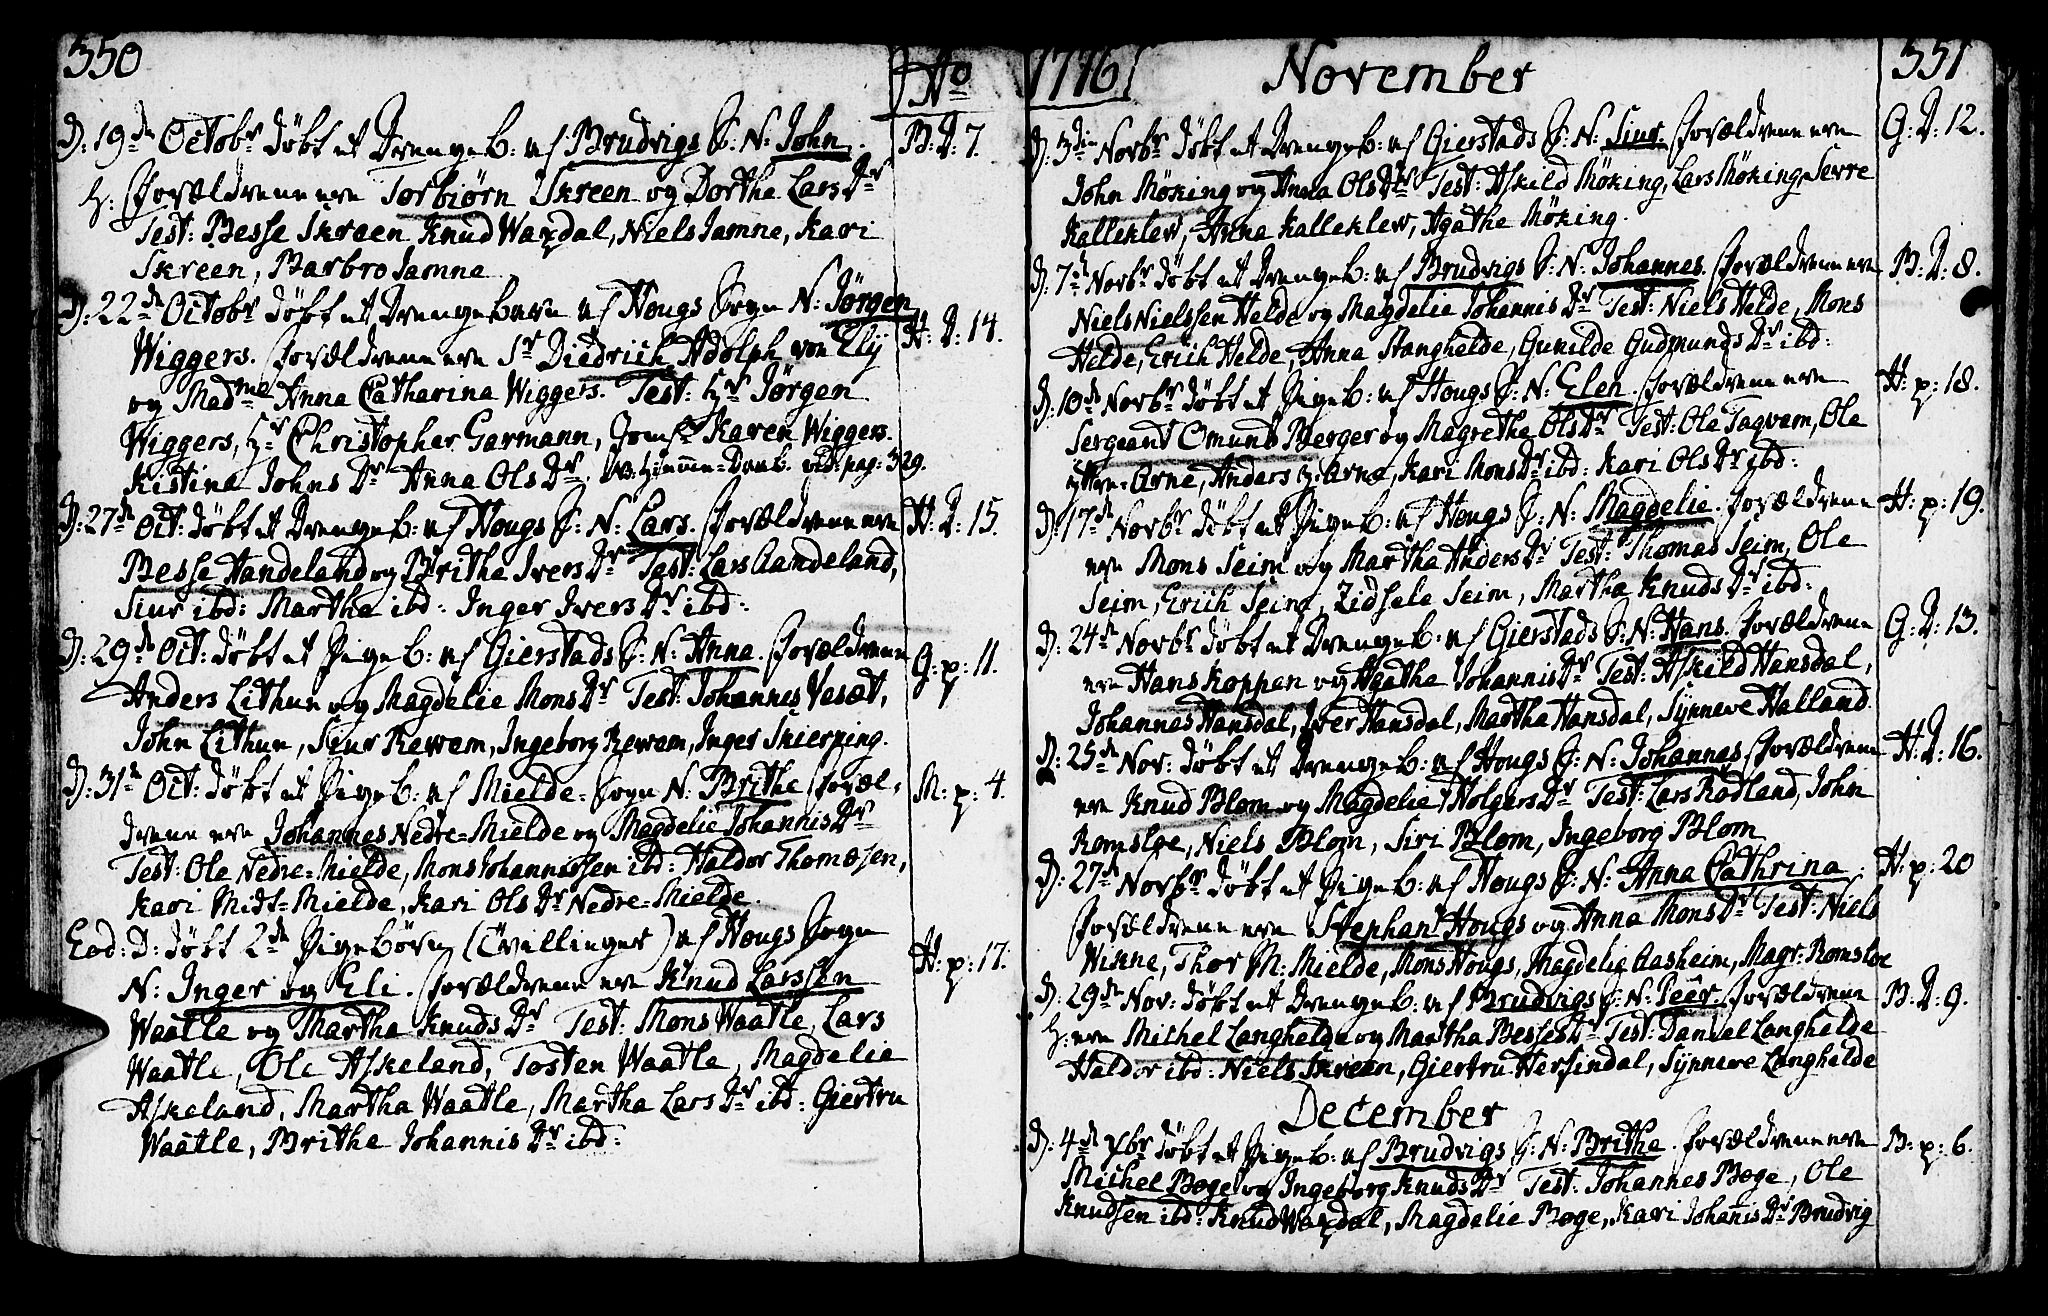 350
Ao
D: 19de Octobr døbt et Drengeb: af Brudvigs S: N: John. B: D: 7.
H: Forældrene ere Torbiørn Skreen og Dorthe Lars Dr
Test: Besse Skreen, Knud Waxdal, Niels Jamne, Kari
Skreen, Barbro Jamne
D: 22de Octobr døbt et Drengebarn af Hougs Sogn N: Jørgen H: D: 14.
Wiggers. Forældrene ere Sr Diedrich Adolph von Elÿ
og Madme Anna Catharina Wiggers. Test: Hr Jørgen
Wiggers, Hr Christopher Garmann, Jomfr Karen Wiggers.
Kistina Johns Dr Anna Ols Dr. NB. Hiemme-Daab. vid: pag: 329.
D: 27de Oct: døbt et Drengeb: af Hougs S: N: Lars. Forældrene ere H: D: 15.
Besse Handeland og Brithe Ivers Dr Test: Lars Aandeland,
Siur ibd: Martha ibd: Inger Ivers Dr ibd:
D: 29de Oct: døbt et Pigeb: af Gierstads S: N: Anna. Forældrene G: p: 11.
Anders Lithun og Magdelie Mons Dr Test: Johannes Vesæt,
John Lithun, Siur Rewem, Ingeborg Rewem, Inger Skierping.
D: 31te Oct: døbt et Pigeb: af Mielde-Sogn N: Brithe Foræl- M: p: 4.
drene ere Johannes Nedre-Mielde og Magdelie Johannis Dr
Test: Ole Nedre-Mielde, Mons Johannessen ibd: Haldor Thomæsen,
Kari Midt-Mielde, Kari Ols Dr Nedre-Mielde.
Eod: D: døbt 2de Pigebørn (Tvillinger) af Hougs Sogn H: p: 17.
N: Inger og Eli. Forældrene ere Knud Larssen
Waatle og Martha Knuds Dr Test: Mons Waatle, Lars
Waatle, Ole Askeland, Tosten Waatle, Magdelie
Askeland, Martha Waatle, Martha Lars Dr ibd: Giertru
Waatle, Brithe Johannis Dr ibd:
1776
November
351
D: 3die Novbr døbt et Drengeb: af Gierstads S: N: Siur. Forældrene ere G: D: 12.
John Möking og Anna Ols Dr Test: Askild Möking, Lars Möking, Serre
Kalleklew, Anna Kalleklew, Agathe Möking.
D: 7de Novbr døbt et Drengeb: af Brudvigs S: N: Johannes. Forældrene ere B: D: 8.
Niels Nielssen Helde og Magdelie Johannis Dr Test: Niels Helde, Mons
Helde, Erich Helde, Anna Stanghelde, Gunilde Gudmunds Dr ibd:
D: 10de Novbr døbt et Pigeb: af Hougs S: N: Elen. Forældrene ere H: p: 18.
Sergeant Omund Berger og Magrethe Ols Dr Test: Ole Tagwam, Ole
Arne, Anders Arne, Kari Mons Dr ibd: Kari Ols Dr ibd:
D: 17de Novbr døbt et Pigeb: af Hougs S: N: Magdelie. Forældrene H: p: 19.
ere Mons Seim og Martha Anders Dr Test: Thomas Seim, Ole
Seim, Erich Seim, Zidsele Seim, Martha Knuds Dr ibd:
D: 24de Novbr døbt et Drengeb: af Gierstads S: N: Hans. Forældrene G: D: 13.
ere Hans Koppen og Agatha Johannis Dr Test: Askild Hansdal,
Johannes Hansdal, Iver Hansdal, Martha Hansdal, Synneve Halland.
D: 25de Nov: døbt et Drengeb: af Hougs S: N: Johannes Forældrene H: D: 16.
ere Knud Blom og Magdelie Holgers Dr Test: Lars Rødland, John
Romsloe, Niels Blom, Siri Blom, Ingeborg Blom
D: 27de Novbr døbt et Pigeb: af Hougs S: N: Anna Cathrina. H: p: 20
Forældrene ere Stephan Hougs og Anna Mons Dr Test: Niels
Wisne, Thor M: Mielde, Mons Hougs, Magdelie Aasheim, Magr: Romsloe
D: 29de Nov: døbt et Drengeb: af Brudvigs S: N: Peer. Forældrene B: D: 9.
H: ere Michel Langhelde og Martha Besses Dr Test: Daniel Langhelde
Haldor ibd: Niels Skreen, Giertru Hersindal, Synneve Langhelde
December
D: 4de Xbr døbt et Pigeb: af Brudvigs S: N: Brithe. Forældrene ere B: p: 6.
Michel Bøge og Ingeborg Knuds Dr Test: Johannes Bøge, Ole
Knudsen ibd: Knud Waxdal, Magdelie Bøge, Kari Johañis Dr Brudvig